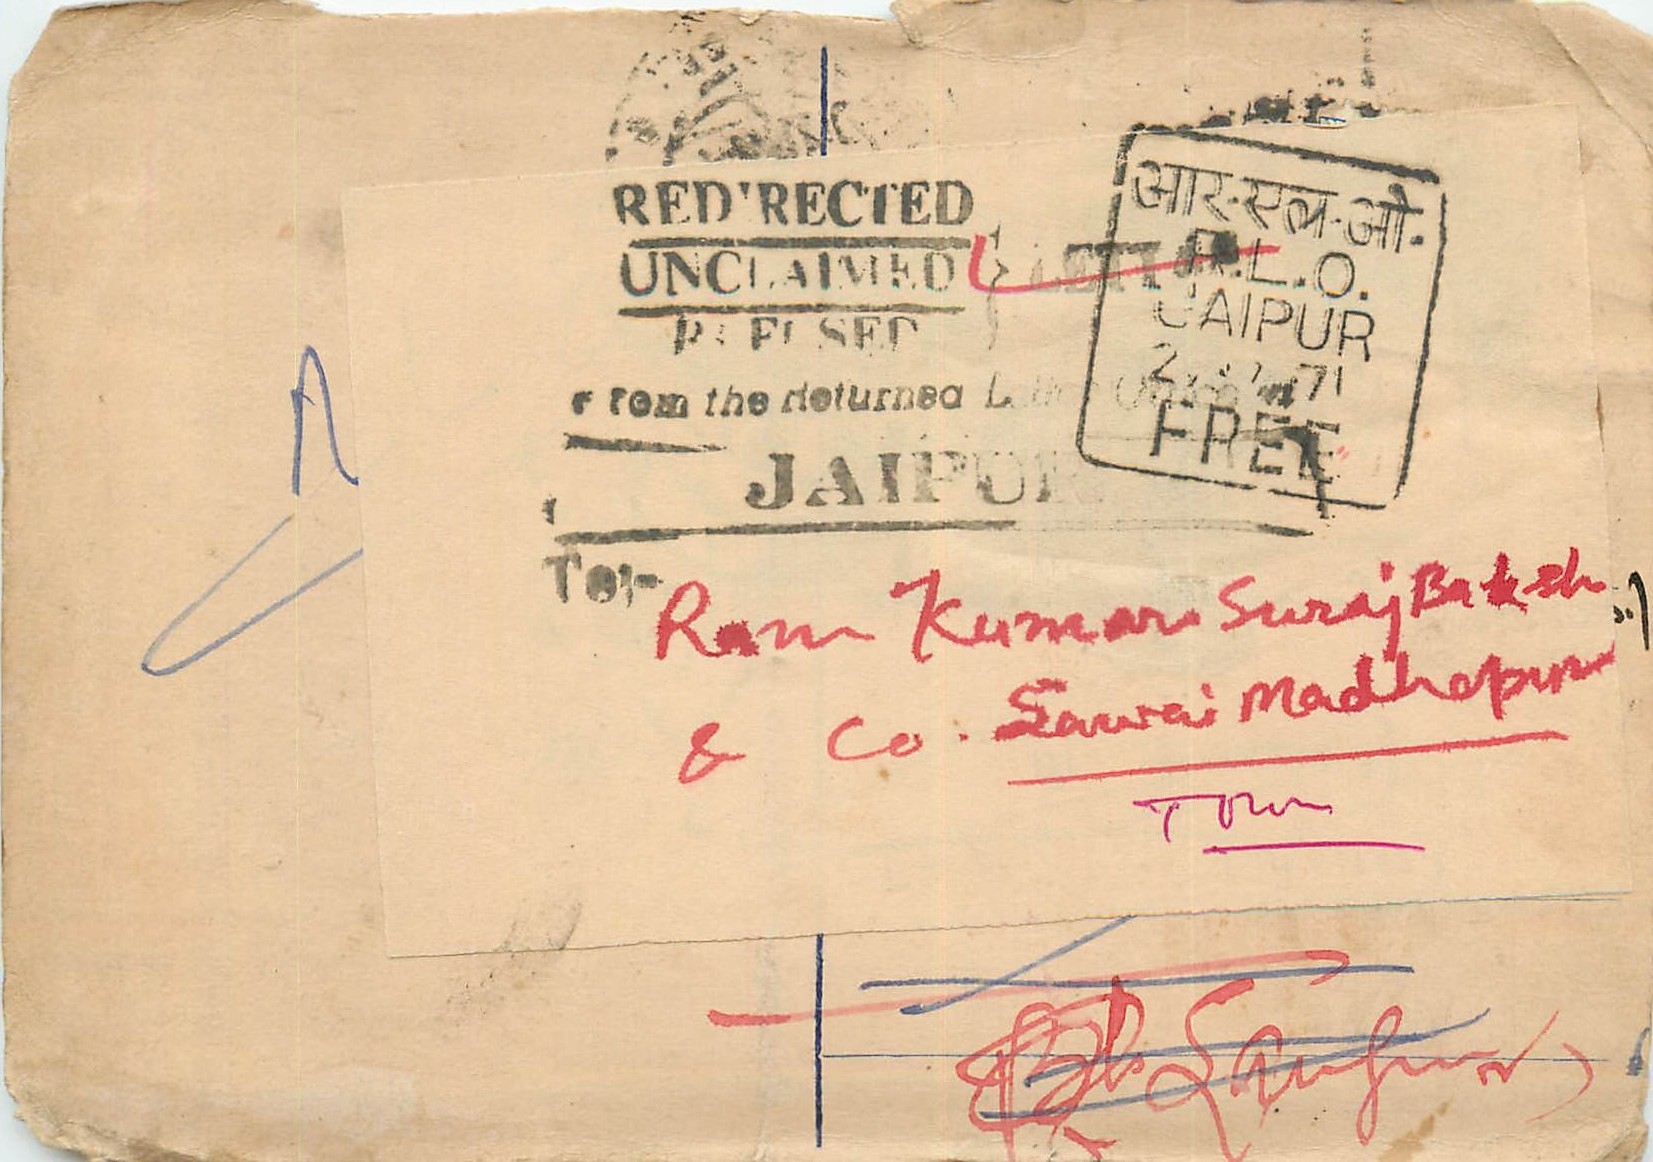 RED'RECTED
UNCLAIMED
REFUSED
From the Returned
JAIPUR
To:-
आर·एल·ओ·
R.L.O.
JAIPUR
71
FREE
Ram Kumar Suraj Baksh
& Co. Sawai Madhopur
Town